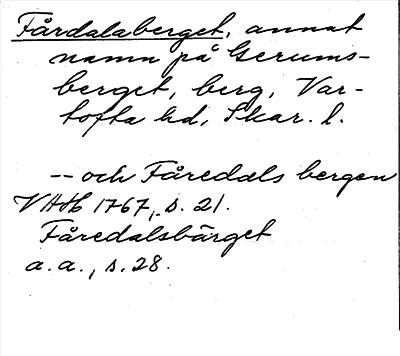 Fårdalaberget, annat
namn på Gerums-
berget, berg, Var-
tofta hd, Skar. l.
-- och Fåredals bergen
VAH 1767, s. 21.
Fåredalsbärget
a. a., s. 28.